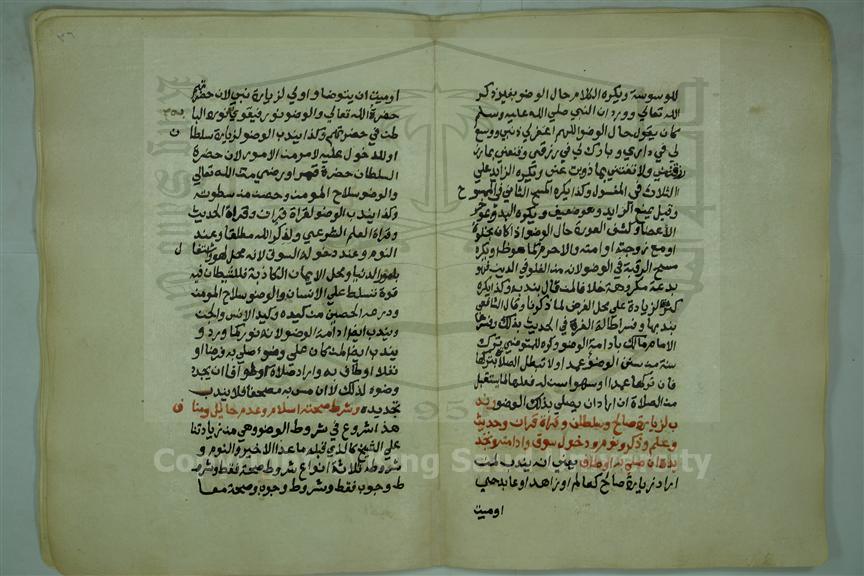 للوسوسة ويكره الكلام حال الوضوء بغير ذكر
الله تعالي وورد ان النبي صلي الله عليه وسلم
كان يقول حال الوضو اللهم اغفر لي ذنبي ووسع
لي في داري وبارك لي في رزقي وقنعني بما رز
رقتني ولا تفتني بما زويت عني ويكره الزايد علي
الثلاث في المغسول وكذا يكره المسح الثاني في الممسوح
وقيل يمنع الزايد وهو ضعيف ويكره البدو بموخر
الاعضا وكشف العورة حال الوضو اذا كان بخلوة
او مع زوجته او امته والا حرم كما هو ظ ويكره
مسح الرقبة في الوضو لانه من الغلو في الدين فهو
بدعة مكروهة خلافا لمن قال بندبه وكذا يكره
كثرة الزيادة علي محل الفرض لما ذكرنا وقال الشافعي
بندبها وفسر اطالة الغرة في الحديث بذلك وفسرها
الامام مالك بادامة الوضو وكره للمتوضي ترك
سنة من سنن الوضو عمدا ولا تبطل الصلاة بتركها
فان تركها عمدا او سهوا سن له فعلها لما يستقبل
من الصلاة ان اراد ان يصلي بذلك الوضو وند
ب لزيارة صالح وسلطان وقراة قران وحديث
وعلم وذكر ونوم ودخول سوق وادامته وتجد
يده ان صلي به او طاف يعني انه يندب لمن
اراد زيارة صالح كعالم او زاهد او عابد حي
او ميت
او ميت ان يتوضا واولي لزيارة نبي لان حضرتهم
حضرة الله تعالي والوضو نور فيقوي نوره البا
طن في حضرتهم وكذا يندب الوضو لزيارة سلطا
ن
او للدخول عليه لامر من الامور لان حضرة
السلطان حضرة قهر او رضي من الله تعالي
والوضو سلاح المومن وحصن من سطوته
وكذا يندب الوضو لقراة قران وقراة الحديث
وقراة العلم الشرعي ولذكر الله مطلقا وعند
النوم وعند دخوله السوق لانه محل لهو واشتغا
ل
بامور الدنيا ومحل الايمان الكاذبة فللشيطان فيه
قوة تسلط علي الانسان والوضو سلاح المومن
ودرعه الحصين من كيده وكيد الانس والجن
ويندب ايضا ادامة الوضو لانه نور كما ورد و
يندب ايضا لمن كان علي وضوء صلي به فرضا او
نفلا او طاف به واراد صلاة او طوافا ان يجدد
وضوه لذلك لا ان مس به مصحفا فلا يندب
تجديده وشرط صحته اسلام وعدم حايل ومنا
ف
هذا شروع في شروط الوضو وهي من زيادتنا
علي الشيخ كالذي قبله ما عدا الاخير والنوم و
شروطه ثلاثة انواع شروط صحة فقط وشرو
ط وجوب فقط وشروط وجوب وصحة معا